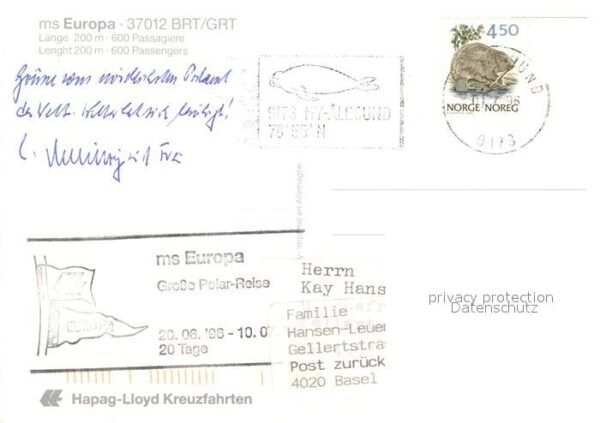 ms Europa · 37012 BRT/GRT
Länge 200 m · 600 Passagiere
Lenght 200 m · 600 Passengers
4,50
NORGE NOREG
9173 NY-ÅLESUND
78°55' N
9173
Grüsse vom nördlichsten
der Welt
Imprimé en Allemagne
ms Europa
Große Polar-Reise
20.06.'96 - 10.07.
20 Tage
EUROPA
Herrn
Kay Hans
Familie
Hansen-Leuen
Gellertstra
Post zurück
4020 Basel
privacy protection
Datenschutz
Hapag-Lloyd Kreuzfahrten